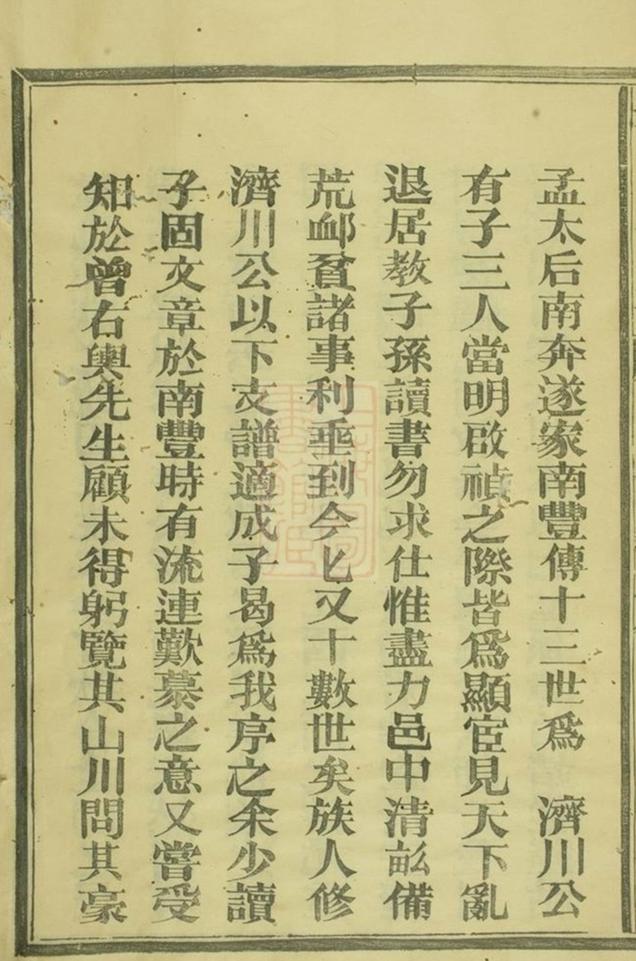 孟太后南奔遂家南豐傳十三世爲　濟川公
有子三人當明啟禎之際皆爲顯宦見天下亂
退居教子孫讀書勿求仕惟盡力邑中清畝備
荒䘏貧諸事利垂到今匕又十數世矣族人修
濟川公以下支譜適成子曷爲我序之余少讀
子固文章於南豐時有流連歎慕之意又嘗受
知於曾右輿先生顧未得躬覽其山川問其豪